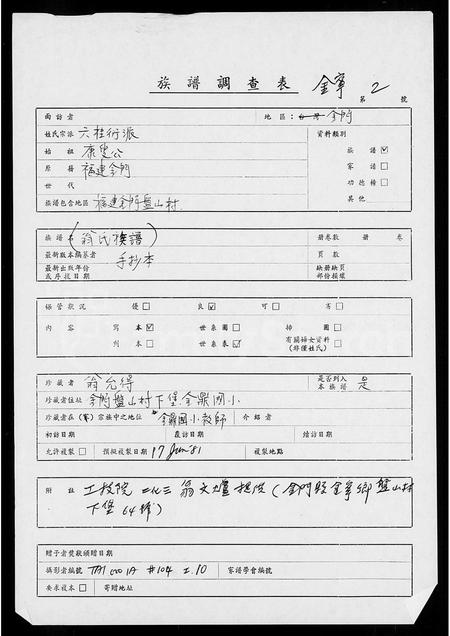 族譜調查表 金寧 第 2 號
面訪者 地區：台灣 金門
姓氏宗派 六桂衍派 資料類別
始祖 康叟公 族譜☑
原籍 福建金門 家譜□
世代 功德榜□
族譜包含地區 福建金門盤山村 其他
族譜名 (翁氏族譜) 冊卷數 冊 卷
最新版本編纂者 手抄本 頁數
最新出版年份或序投日期 缺冊缺頁部份描緣
保管狀況 優□ 良☑ 可□ 劣□
內容 寫本☑ 世系圖□ 插圖□
刊本□ 世系表☑ 有關婦女資料(非僅姓氏)□
珍藏者 翁允得 是否列入本族譜 是
珍藏者住址 金門盤山村下堡.金鼎國小
珍藏者在(家)宗族中之地位 金鼎國小教師 介紹者
初訪日期 覆訪日期 續訪日期
允許複製□ 預擬複製日期 17 Jun '81 複製地點
附註 工技院 翁文爐提供(金門縣金寧鄉盤山村
下堡64號)
贈予者獎狀頒贈日期
攝影者編號 TAI 000 1A #104 I.10 家譜學會編號
要求複本□ 寄贈地址